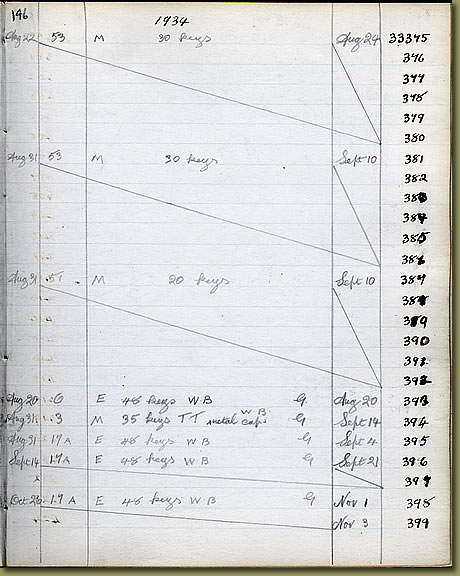 146
1934
Aug 22 53 M 30 keys Aug 24 33375
376
377
378
379
380
Aug 31 53 M 30 keys Sept 10 381
382
383
384
385
386
Aug 31 51 M 20 keys Sept 10 387
388
389
390
391
392
Aug 20 6 E 48 keys W B G Aug 20 393
Aug 31 3 M 35 keys TT metal cap. W.B. G Sept 14 394
Aug 31 17A E 48 keys W B G Sept 4 395
Sept 14 17A E 48 keys W B G Sept 21 396
397
Oct 26 17A E 48 keys W B G Nov 1 398
Nov 3 399